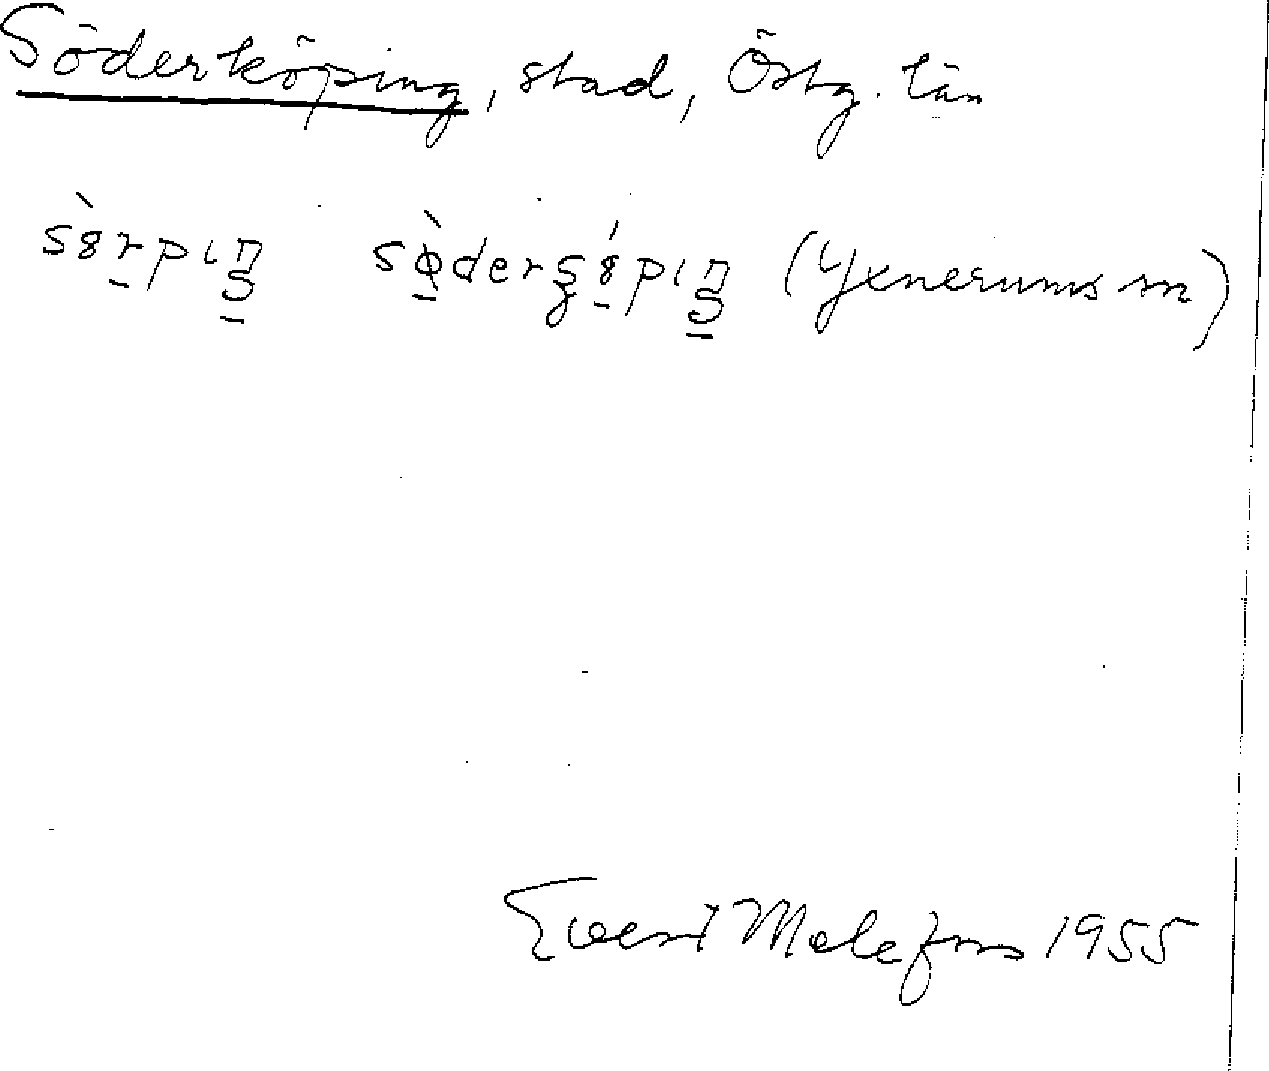 Söderköping, stad, Östg. län
sö̀rpiŋ söderçöpiŋ (Yxnerums sn)
Evert Melefors 1955